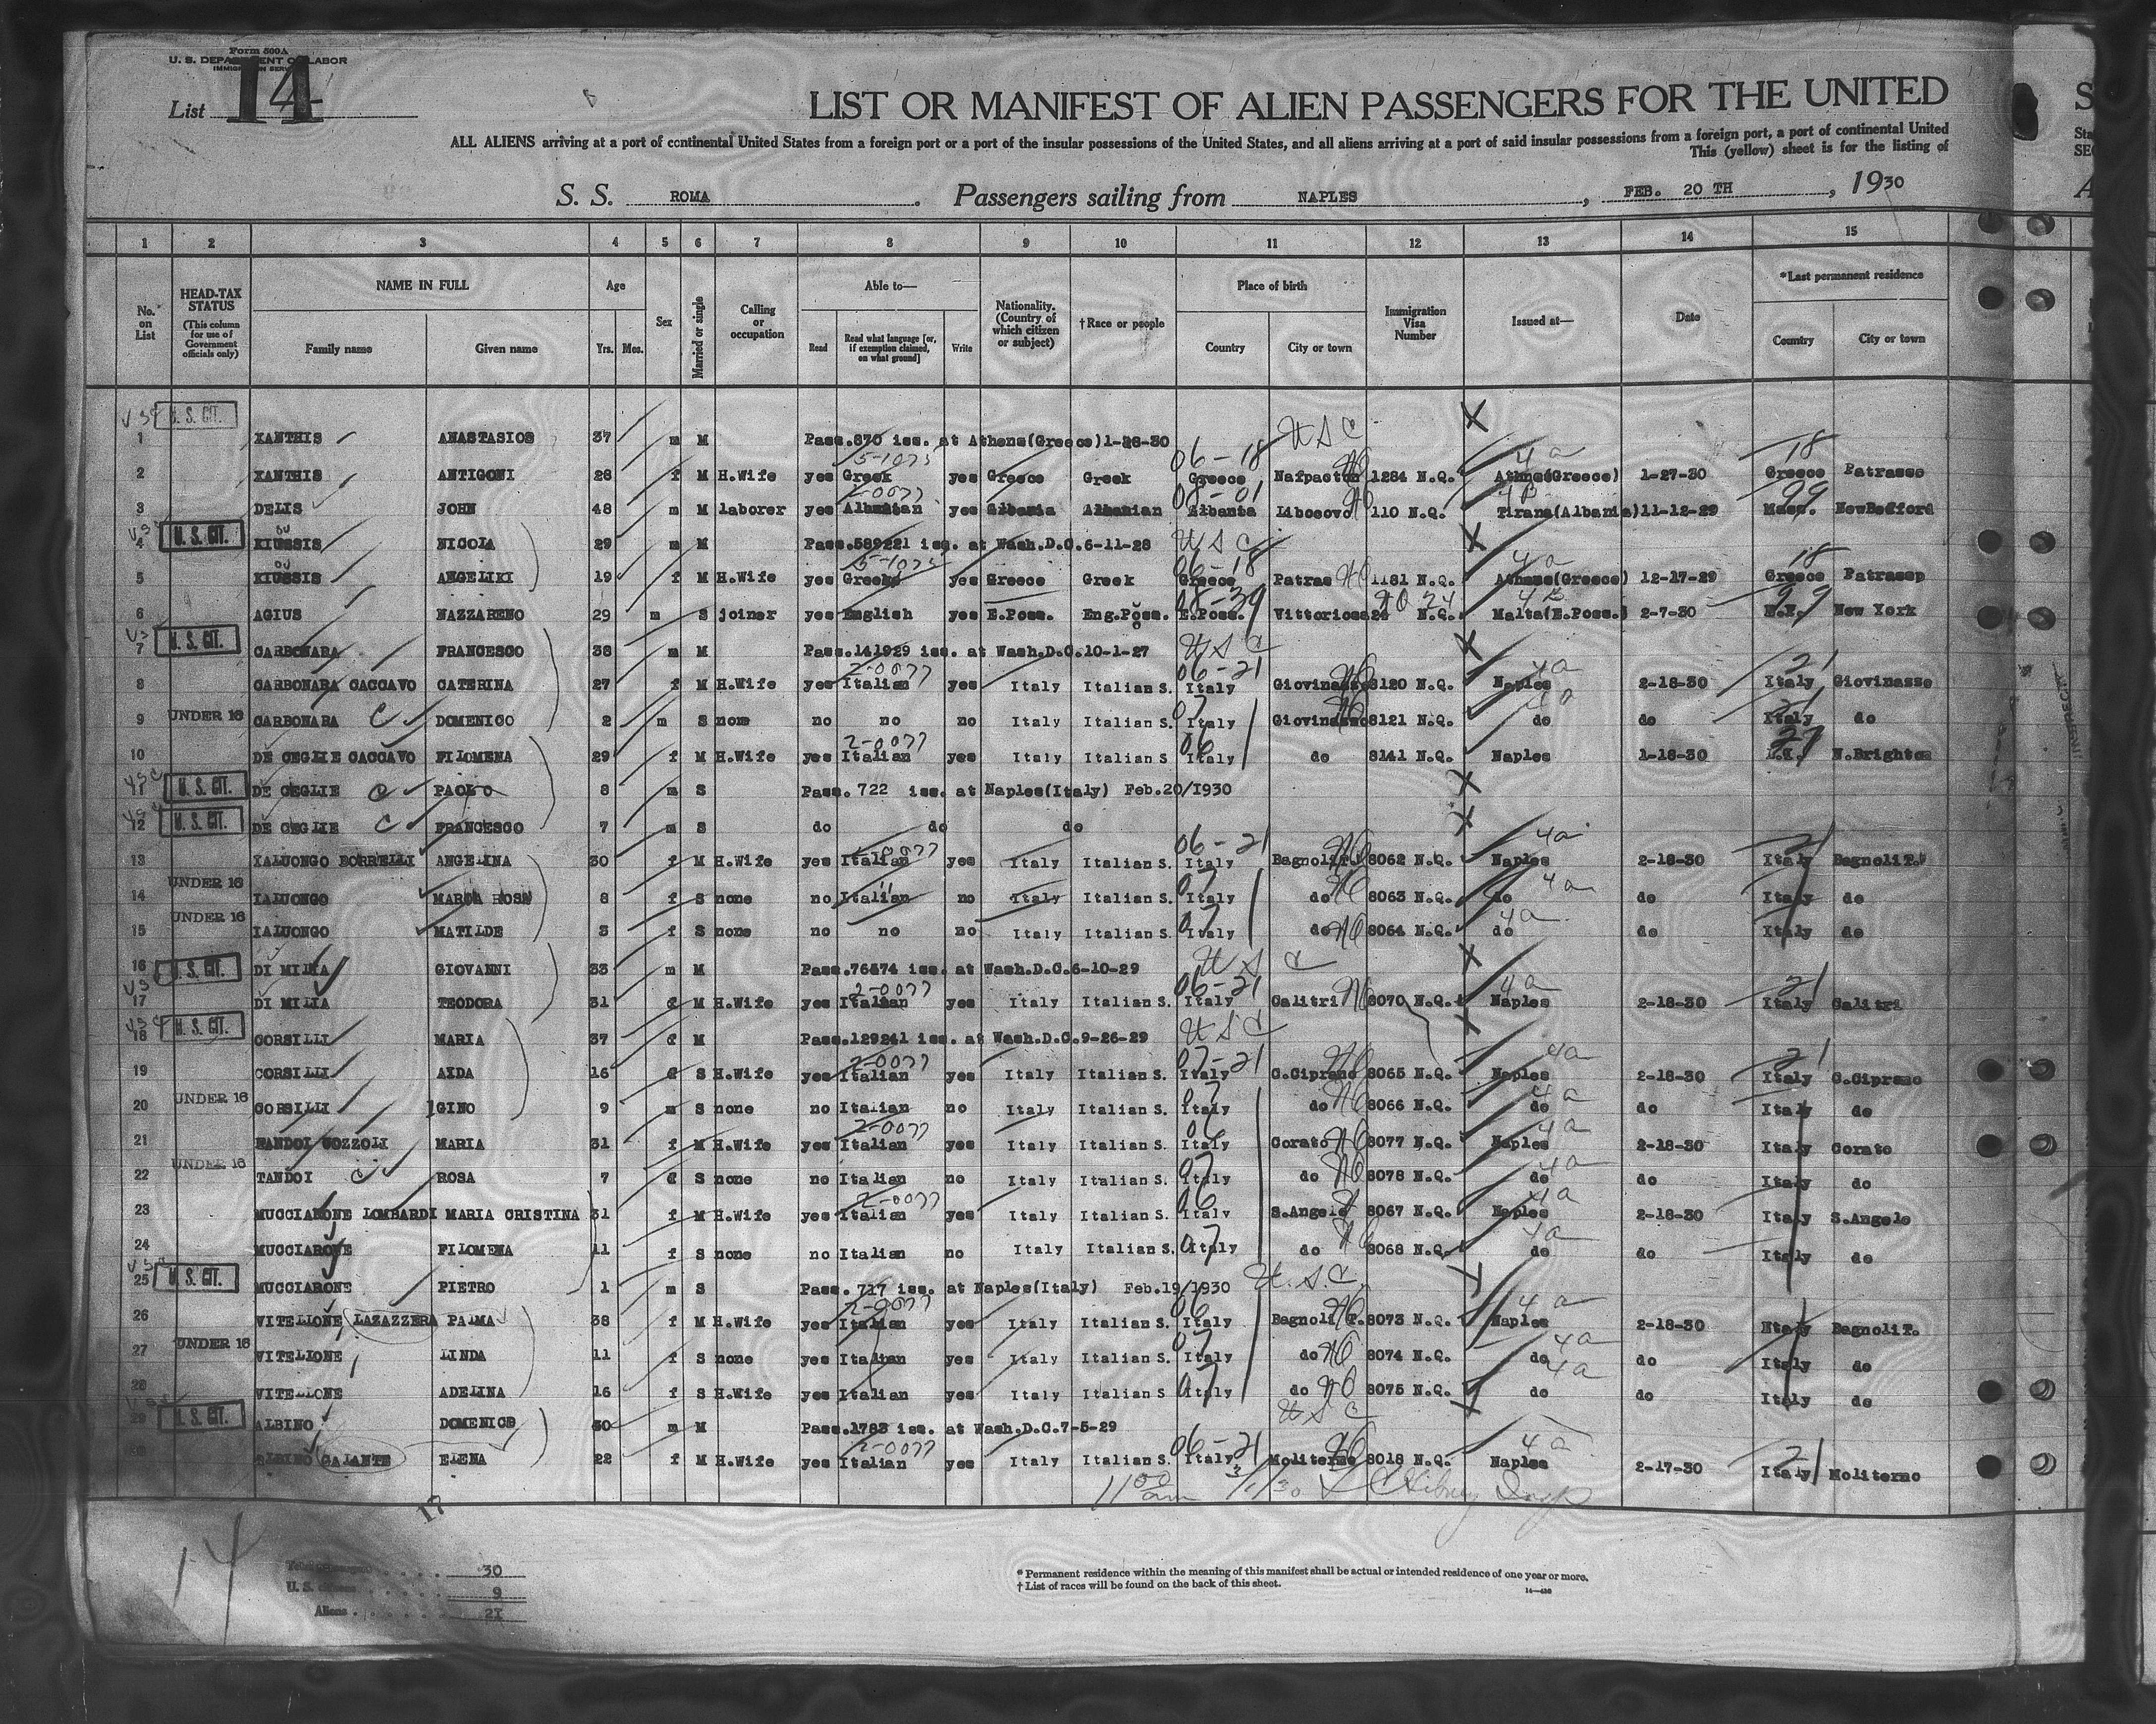 Form 500A
U. S. DEPARTMENT OF LABOR
IMMIGRATION SERVICE
List 14
LIST OR MANIFEST OF ALIEN PASSENGERS FOR THE UNITED
ALL ALIENS arriving at a port of continental United States from a foreign port or a port of the insular possessions of the United States, and all aliens arriving at a port of said insular possessions from a foreign port, a port of continental United
This (yellow) sheet is for the listing of
S. S. ROMA. Passengers sailing from NAPLES, FEB. 20 TH, 1930
1 2 3 4 5 6 7 8 9 10 11 12 13 14 15
No. on List
HEAD-TAX STATUS (This column for use of Government officials only)
NAME IN FULL Family name Given name
Age Yrs. Mos.
Sex
Married or single
Calling or occupation
Able to— Read Read what language [or, if exemption claimed, on what ground] Write
Nationality. (Country of which citizen or subject)
†Race or people
Place of birth Country City or town
Immigration Visa Number
Issued at—
Date
*Last permanent residence Country City or town
U. S. CIT. 1 XANTHIS ANASTASIOS 37 m M Pass.870 iss. at Athens(Greece)1-28-30 USC
2 XANTHIS ANTIGONI 28 f M H.Wife yes Greek 5-1075 yes Greece Greek 06-18 Greece Nafpacton 1284 N.Q. Athns(Greece) 4a 1-27-30 18 Greece Patrasso
3 DELIS JOHN 48 m M laborer yes Albanian 2-0077 yes Albania Albanian 08-01 Albania Libosovo 110 N.Q. Tirana(Albania) 4B 11-12-29 99 Mass. NewBedford
U. S. CIT. 4 KIUSSIS NICOLA 29 m M Pass.589221 iss. at Wash.D.C.6-11-28 USC
5 KIUSSIS ANGELIKI 19 f M H.Wife yes Greek 5-1075 yes Greece Greek 06-18 Greece Patras 1181 N.Q. Athens(Greece) 4a 12-17-29 18 Greece Patrassp
6 AGIUS NAZZARENO 29 m S joiner yes English yes E.Poss. Eng.Poss. 08-39 E.Poss. Vittoriosa 24 N.Q. Malta(E.Poss.) 2-7-30 99 N.Y. New York
U. S. CIT. 7 CARBONARA FRANCESCO 38 m M Pass.141929 iss. at Wash.D.C.10-1-27 USC
8 CARBONARA CACCAVO CATERINA 27 f M H.Wife yes Italian 2-0077 yes Italy Italian S. 06-21 Italy Giovinasso 8120 N.Q. Naples 4a 2-18-30 21 Italy Giovinasse
9 UNDER 16 CARBONARA C DOMENICO 2 m S none no no no Italy Italian S. 07 Italy Giovinasso 8121 N.Q. do 4a do 21 Italy do
10 DE CEGLIE CACCAVO FILOMENA 29 f M H.Wife yes Italian 2-0077 yes Italy Italian S 06 Italy do 8141 N.Q. Naples 1-18-30 N.Brighton
U. S. CIT. 11 DE CEGLIE C PAOLO 8 m S Pass. 722 iss. at Naples(Italy) Feb.20/1930
U. S. CIT. 12 DE CEGLIE C FRANCESCO 7 m S do do do
13 IALUONGO BORRELLI ANGELINA 30 f M H.Wife yes Italian 0077 yes Italy Italian S. 06-21 Italy Bagnoli T. 8062 N.Q. Naples 4a 2-18-30 21 Italy Bagnoli T.
14 UNDER 16 IALUONGO MARIA ROSA 8 f S none no Italian no Italy Italian S. 07 Italy do 8063 N.Q. do 4a do Italy do
15 UNDER 16 IALUONGO MATILDE 3 f S none no no no Italy Italian S. 07 Italy do 8064 N.Q. do 4a do Italy do
16 U. S. CIT. DI MILIA GIOVANNI 33 m M Pass.76474 iss. at Wash.D.C.6-10-29 USC
17 DI MILIA TEODORA 31 f M H.Wife yes Italian 2-0077 yes Italy Italian S. 06-21 Italy Calitri 8070 N.Q. Naples 4a 2-18-30 21 Italy Calitri
18 U. S. CIT. CORSILLI MARIA 37 f M Pass.129241 iss. at Wash.D.C.9-26-29 USC
19 CORSILLI AIDA 16 f S H.Wife yes Italian 2-0077 yes Italy Italian S. 07-21 Italy C.Ciprano 8065 N.Q. Naples 4a 2-18-30 21 Italy C.Ciprano
20 UNDER 16 CORSILLI GINO 9 m S none no Italian no Italy Italian S. 07 Italy do 8066 N.Q. do 4a do Italy do
21 TANDOI COZZOLI MARIA 31 f M H.Wife yes Italian 2-0077 yes Italy Italian S. 06 Italy Corato 8077 N.Q. Naples 4a 2-18-30 Italy Corato
22 UNDER 16 TANDOI C ROSA 7 f S none no Italian no Italy Italian S. 07 Italy do 8078 N.Q. do 4a do Italy do
23 MUCCIARONE LOMBARDI MARIA CRISTINA 31 f M H.Wife yes Italian 2-0077 yes Italy Italian S. 06 Italy S.Angelo 8067 N.Q. Naples 4a 2-18-30 Italy S.Angelo
24 MUCCIARONE FILOMENA 11 f S none no Italian no Italy Italian S. 07 Italy do 8068 N.Q. do 4a do Italy do
25 U. S. CIT. MUCCIARONE PIETRO 1 m S Pass. 717 iss. at Naples(Italy) Feb.19/1930 U.S.C.
26 VITELLONE LAZAZZERA PALMA 38 f M H.Wife yes Italian 2-0077 yes Italy Italian S. 06 Italy Bagnoli T. 8073 N.Q. Naples 4a 2-18-30 Italy Bagnoli T.
27 UNDER 16 VITELIONE LINDA 11 f S none yes Italian yes Italy Italian S. 07 Italy do 8074 N.Q. do 4a do Italy do
28 VITELLONE ADELINA 16 f S H.Wife yes Italian yes Italy Italian S 07 Italy do 8075 N.Q. do 4a do Italy do
29 U. S. CIT. ALBINO DOMENICO 30 m M Pass.1783 iss. at Wash.D.C.7-5-29 USC
ALBINO GALANTE ELENA 22 f M H.Wife yes Italian 2-0077 yes Italy Italian S. 06-21 Italy Moliterno 8018 N.Q. Naples 4a 2-17-30 21 Italy Moliterno
11 00 am 3/1/30 Insp
17
14
30
U. S. citizens 9
Aliens 21
* Permanent residence within the meaning of this manifest shall be actual or intended residence of one year or more.
† List of races will be found on the back of this sheet.